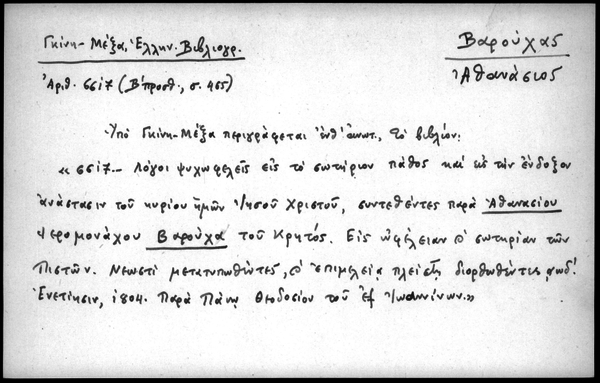 Γκίνη-Μέξα, Ἑλλην. Βιβλιογρ.
Βαρούχας
Ἀθανάσιος
Ἀριθ. 6617 (Β' προσθ., σ. 465)
Ὑπὸ Γκίνη-Μέξα περιγράφεται ἐνθ' ἀνωτ., τὸ βιβλίον:
«6617.- Λόγοι ψυχωφελεῖς εἰς τὸ σωτήριον πάθος καὶ εἰς τὴν ἔνδοξον
ἀνάστασιν τοῦ κυρίου ἡμῶν Ἰησοῦ Χριστοῦ, συντεθέντες παρὰ Ἀθανασίου
Ἱερομονάχου Βαρούχα τοῦ Κρητός. Εἰς ὠφέλειαν ϗ σωτηρίαν τῶν
Πιστῶν. Νεωστὶ μετατυπωθέντες, ϗ ἐπιμελείᾳ πλείστῃ διορθωθέντες, αωδ'.
Ἐνετίησιν, 1804. Παρὰ Πάνῳ Θεοδοσίου τοῦ ἐξ Ἰωαννίνων.»